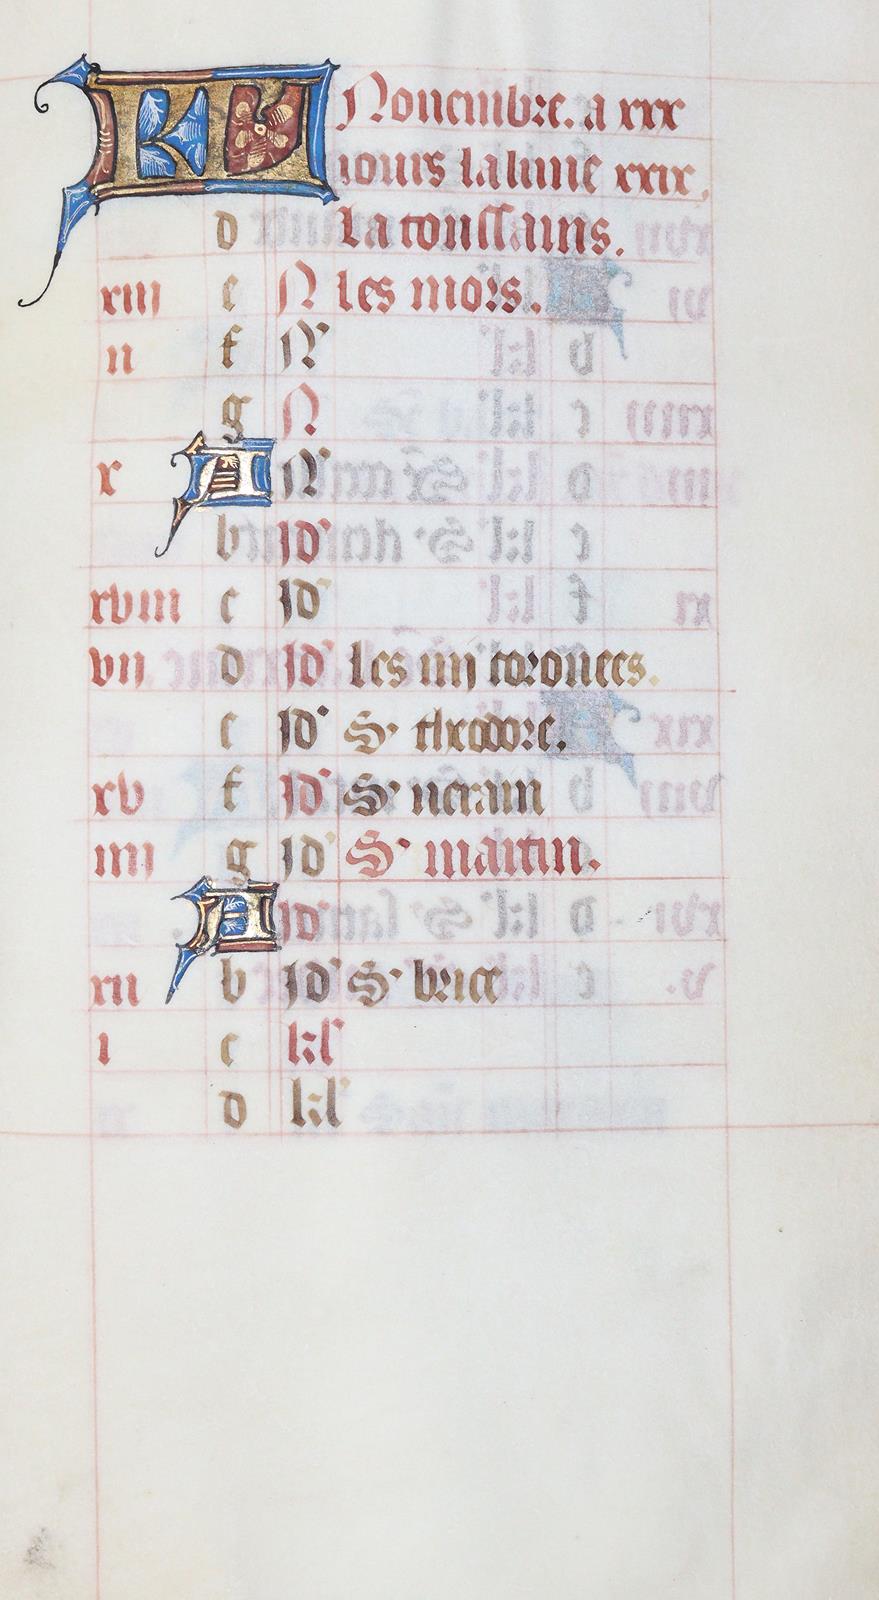 KL Nouembre. a xxx
iours la lune xxix.
d la toussains.
xiii e N les mors.
ii f N'
g N
x A N'
b id'
xviii c id'
vii d id' les iiii coronees.
e id' S' theodore.
xv f id' S' ueram
iiii g id' S' martin.
A id'
xii b id' S' brice
i c kl'
d kl'